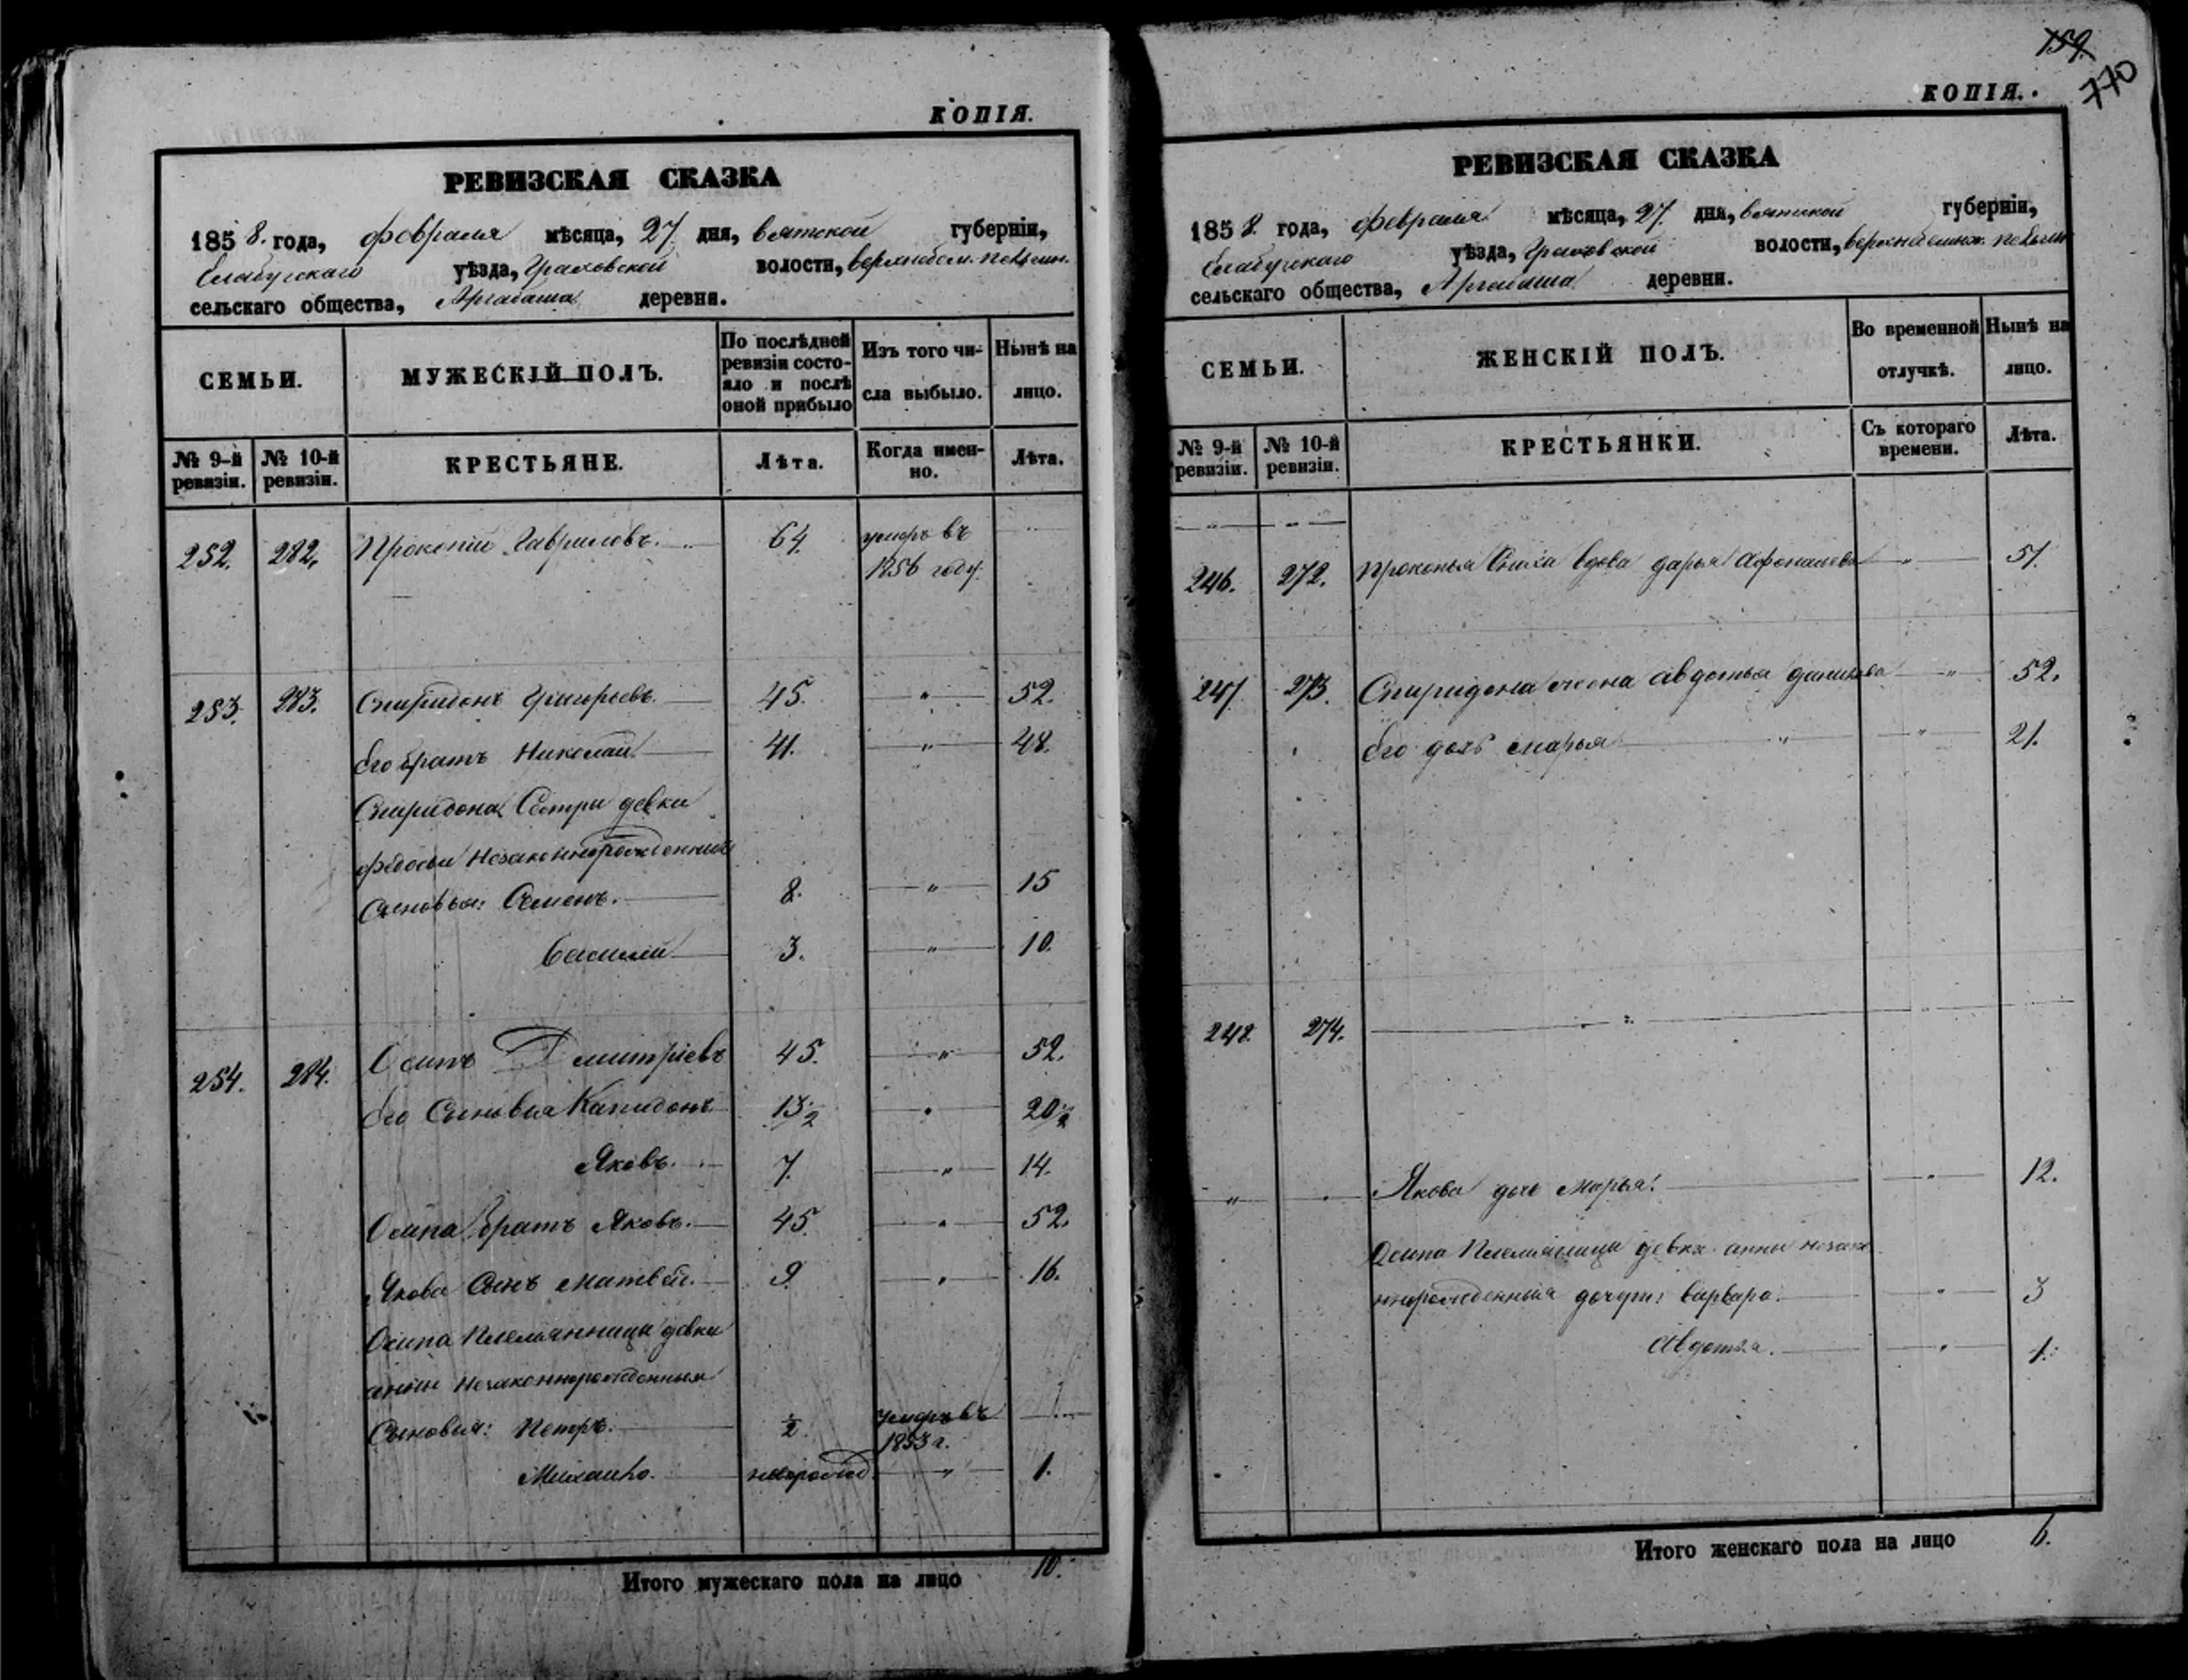 КОПІЯ.
РЕВИЗСКАЯ СКАЗКА
1858. года, февраля мѣсяца, 27 дня, вятской губерніи,
Елабугскаго уѣзда, Граховской волости,
сельскаго общества, Аргабаша деревни.
СЕМЬИ.
МУЖЕСКІЙ ПОЛЪ.
По послѣдней ревизіи состо-
яло и послѣ оной прибыло
Изъ того чи-
сла выбыло.
Нынѣ на лицо.
№ 9-й ревизіи.
№ 10-й ревизіи.
КРЕСТЬЯНЕ.
Лѣта.
Когда имен-
но.
Лѣта.
252. 282. Прокопій Гавриловъ. 64. умеръ въ
1856 году.
253. 283. Спиридонъ Григорьевъ. 45. „ 52.
Его братъ Николай 41. „ 48.
Спиридона Сестры девки
федосьи Незаконнорожденныя
Сыновья: Семенъ. 8. „ 15
Василій 3. „ 10.
254. 284. Осипъ Дмитріевъ 45. „ 52.
Его Сыновья Капидонъ 13½ „ 20½
Яковъ. 7. „ 14.
Осипа братъ Яковъ. 45. „ 52.
Якова Сынъ Матвей. 9. „ 16.
Осипа Племянницы девки
анны Незаконнорожденныя
Сыновья: Петръ. ½ умеръ въ
1853 г.
Михайло. новорожд. „ 1.
Итого мужескаго пола на лицо 10.
159.
770
КОПІЯ.
РЕВИЗСКАЯ СКАЗКА
1858. года, февраля мѣсяца, 27. дня, вятской губерніи,
Елабугскаго уѣзда, Граховской волости,
сельскаго общества, Аргабаша деревни.
СЕМЬИ.
ЖЕНСКІЙ ПОЛЪ.
Во временной отлучкѣ.
Нынѣ на лицо.
№ 9-й ревизіи.
№ 10-й ревизіи.
КРЕСТЬЯНКИ.
Съ котораго времени.
Лѣта.
246. 272. Прокопья вдова дарья Афонасьева „ 51.
247. 273. Спиридона жена авдотья данилова „ 52.
Его дочь марья „ 21.
248. 274. „
„ Якова дочь Марья. „ 12.
Осипа Племянницы девки анны незако
ннорожденныя дочери: варвара. „ 3
Авдотья. „ 1.
Итого женскаго пола на лицо 6.